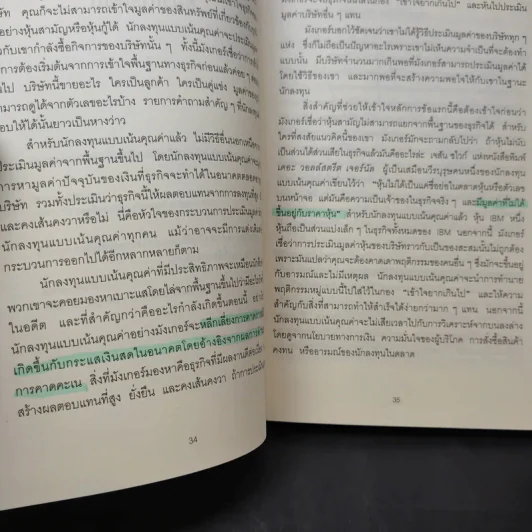 คุณก็จะไม่สามารถเข้าใจมูลค่าของสินทรัพย์ที่เกี่ยวข้อง
อย่างหุ้นสามัญหรือหุ้นกู้ได้ นักลงทุนแบบเน้นคุณค่าจะประเมิน
กับเขากำลังซื้อกิจการของบริษัทนั้น ๆ ทั้งนี้มังเกอร์เชื่อว่าการ
การต้องเริ่มต้นจากการเข้าใจพื้นฐานทางธุรกิจก่อนแล้วค่อย ๆ
ไป บริษัทนี้ขายอะไร ใครเป็นลูกค้า ใครเป็นคู่แข่ง มูลค่า
สามารถดูได้จากตัวเลขอะไรบ้าง รายการคำถามสำคัญ ๆ ที่นักลงทุน
ตอบให้ได้นั้นยาวเป็นหางว่าว
สำหรับนักลงทุนแบบเน้นคุณค่าแล้ว ไม่มีวิธีอื่นนอกเหนือ
ประเมินมูลค่าจากพื้นฐานขึ้นไป โดยนักลงทุนแบบเน้นคุณค่า
การหามูลค่าปัจจุบันของเงินที่ธุรกิจจะทำได้ในอนาคตตลอด
บริษัท รวมทั้งประเมินว่าธุรกิจนี้ให้ผลตอบแทนจากการลงทุนที่สูง
และคงเส้นคงวาหรือไม่ นี่คือหัวใจของกระบวนการประเมินมูลค่า
นักลงทุนแบบเน้นคุณค่าทุกคน แม้ว่าอาจจะมีการแต่งเติม
กระบวนการออกไปได้อีกหลากหลายก็ตาม
นักลงทุนแบบเน้นคุณค่าที่มีประสิทธิภาพจะเหมือนนัก
พวกเขาจะคอยมองหาเบาะแสโดยไล่จากพื้นฐานขึ้นไปว่ามีอะไร
ในอดีต และที่สำคัญกว่าคืออะไรกำลังเกิดขึ้นตอนนี้ อย่างไร
นักลงทุนแบบเน้นคุณค่าอย่างมังเกอร์จะหลีกเลี่ยงการคาดการณ์
เกิดขึ้นกับกระแสเงินสดในอนาคตโดยอ้างอิงจากผล
การคาดคะเน สิ่งที่มังเกอร์มองหาคือธุรกิจที่มีผลงานดี
สร้างผลตอบแทนที่สูง ยั่งยืน และคงเส้นคงวา ถ้าการประเมิน
34
"เข้าใจยากเกินไป" และหันไปประเมิน
มูลค่าบริษัทอื่น ๆ แทน
มังเกอร์บอกไว้ชัดเจนว่าเขาไม่ได้รู้วิธีประเมินมูลค่าของบริษัททุก ๆ
แห่ง ซึ่งก็ไม่ถือเป็นปัญหาอะไรเพราะเขาไม่เห็นความจำเป็นที่จะต้องทำ
แบบนั้น มีบริษัทจำนวนมากเกินพอที่มังเกอร์สามารถประเมินมูลค่าได้
โดยใช้วิธีของเขา และมากพอที่จะสร้างความพอใจให้กับเขาในฐานะ
นักลงทุน
สิ่งสำคัญที่ช่วยให้เข้าใจหลักการข้อแรกนี้คือต้องเข้าใจก่อนว่า
มังเกอร์เชื่อว่าหุ้นสามัญไม่สามารถแยกจากพื้นฐานของธุรกิจได้ สำหรับ
ใครที่สงสัยแนวคิดนี้ของเขา มังเกอร์มักจะถามกลับไปว่า ถ้าหุ้นไม่นับ
เป็นส่วนได้ส่วนเสียในธุรกิจแล้วมันคืออะไรล่ะ เจสัน ซไวก์ แห่งหนังสือพิมพ์
เดอะ วอลล์สตรีต เจอร์นัล ผู้เป็นเสมือนวีรบุรุษคนหนึ่งของนักลงทุน
แบบเน้นคุณค่าเขียนไว้ว่า "หุ้นไม่ได้เป็นแค่ชื่อย่อในตลาดหุ้นหรือตัวเลข
บนหน้าจอ แต่มันคือความเป็นเจ้าของในธุรกิจจริง ๆ และมีมูลค่าที่ไม่ได้
ขึ้นอยู่กับราคาหุ้น" สำหรับนักลงทุนแบบเน้นคุณค่าแล้ว หุ้น IBM หนึ่ง
หุ้นถือเป็นส่วนแบ่งเล็ก ๆ ในธุรกิจทั้งหมดของ IBM นอกจากนี้ มังเกอร์
เชื่อว่าการประเมินมูลค่าหุ้นของบริษัทราวกับเป็นของสะสมนั้นไม่ถูกต้อง
เพราะมันแปลว่าคุณจะต้องคาดเดาพฤติกรรมของคนอื่น ๆ ซึ่งมักจะขึ้นอยู่
กับอารมณ์และไม่มีเหตุผล นักลงทุนแบบเน้นคุณค่าจะนำการทำนาย
พฤติกรรมหมู่แบบนี้ไปใส่ไว้ในกอง "เข้าใจยากเกินไป" และให้ความ
สำคัญกับสิ่งที่สามารถทำให้สำเร็จได้ง่ายกว่ามาก ๆ แทน นอกจากนี้
นักลงทุนแบบเน้นคุณค่าจะไม่เสียเวลาไปกับการวิเคราะห์จากบนลงล่าง
โดยดูจากนโยบายทางการเงิน ความมั่นใจของผู้บริโภค การสั่งซื้อสินค้า
คงทน หรืออารมณ์ของนักลงทุนในตลาด
35